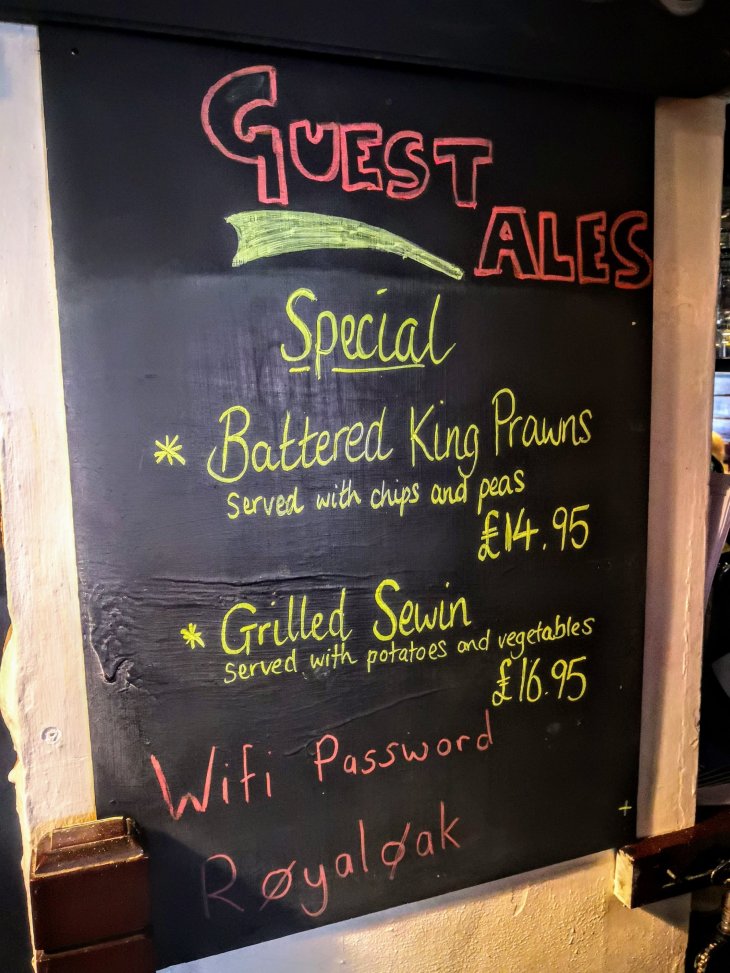 Guest
Ales
Special
* Battered King Prawns
served with chips and peas
£14.95
* Grilled Sewin
served with potatoes and vegetables
£16.95
Wifi Password
Røyaløak